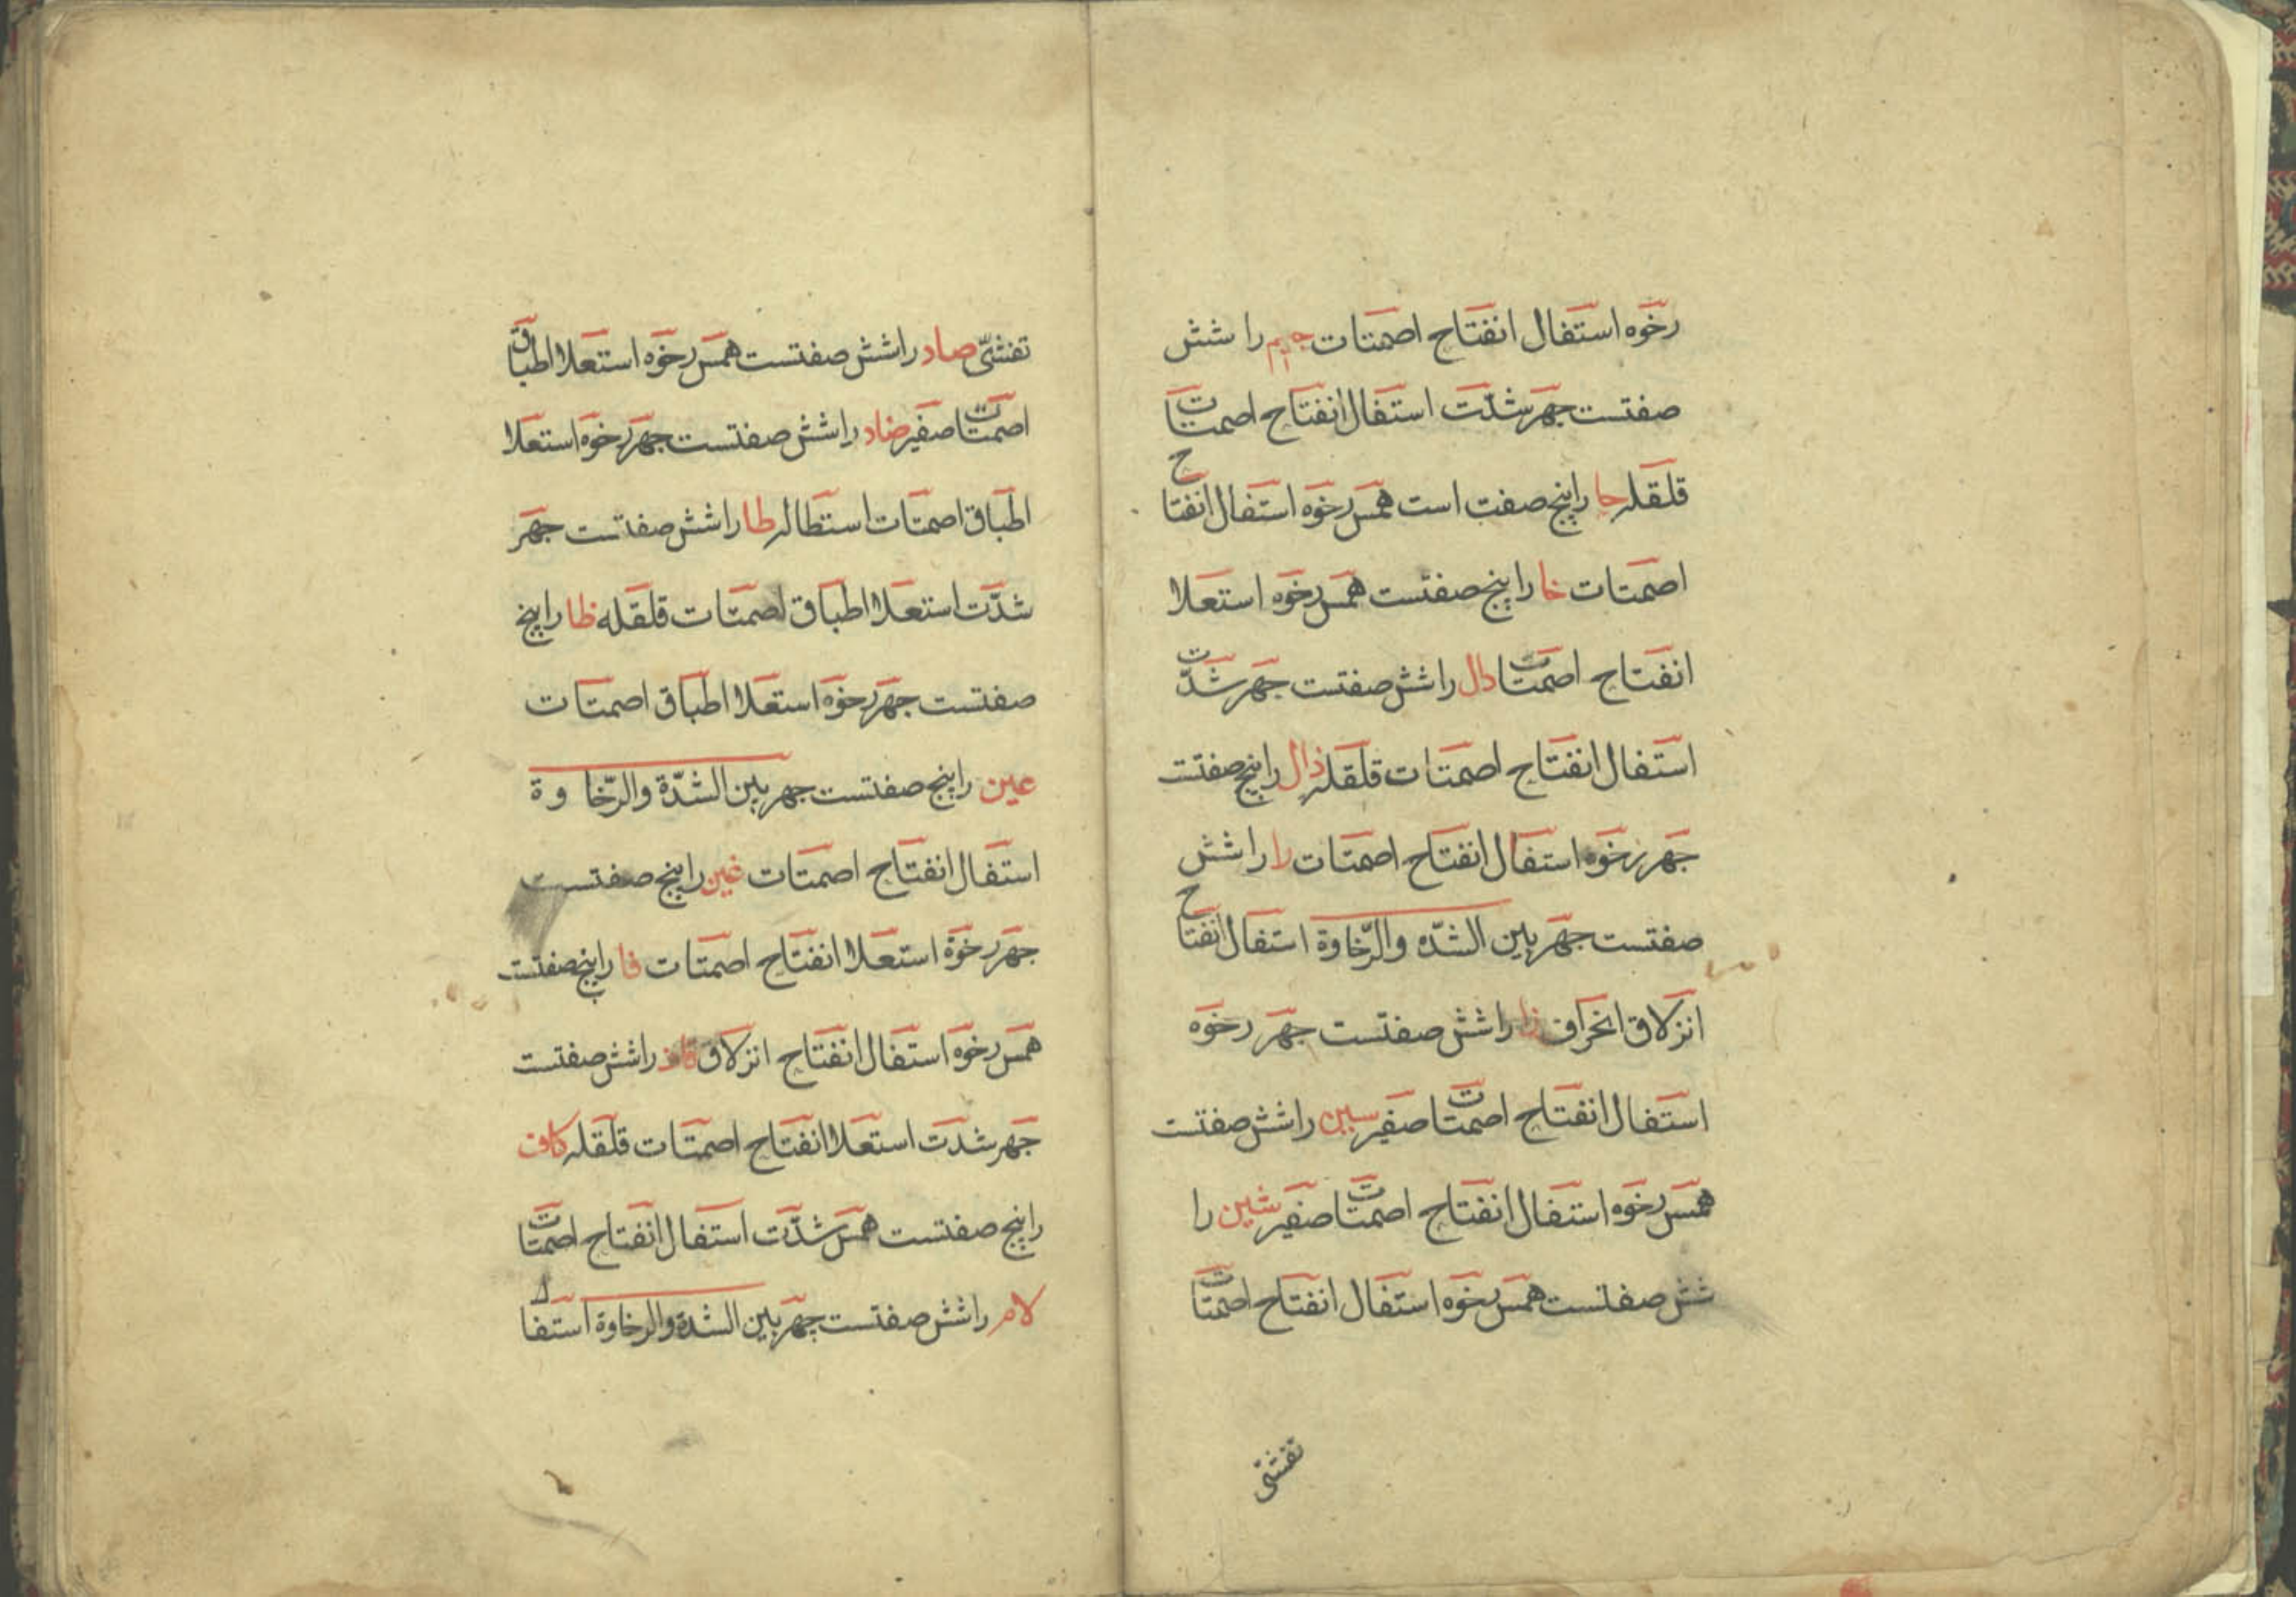 رخوه استفال انفتاح اصمتات جیم را شش
صفتست جهر شدّت استفال انفتاح اصمتات
قلقله حا را پنج صفت است همس رخوه استفال انفتاح
اصمتات خا را پنج صفتست همس رخوه استعلا
انفتاح اصمتات دال را شش صفتست جهر شدّت
استفال انفتاح اصمتات قلقله ذال را پنج صفتست
جهر رخوه استفال انفتاح اصمتات را را شش
صفتست جهر بین الشدّه والرّخاوة استفال انفتاح
انزلاق انحراف زا را شش صفتست جهر رخوه
استفال انفتاح اصمتات صفیر سین را شش صفتست
همس رخوه استفال انفتاح اصمتات صفیر شین را
شش صفتست همس رخوه استفال انفتاح اصمتات
تفشّی
تفشّی صاد را شش صفتست همس رخوه استعلا اطباق
اصمتات صفیر ضاد را شش صفتست جهر رخوه استعلا
اطباق اصمتات استطاله طا را شش صفتست جهر
شدّت استعلا اطباق اصمتات قلقله ظا را پنج
صفتست جهر رخوه استعلا اطباق اصمتات
عین را پنج صفتست جهر بین الشدّة والرّخاوة
استفال انفتاح اصمتات غین را پنج صفتست
جهر رخوة استعلا انفتاح اصمتات فا را پنج صفتست
همس رخوه استفال انفتاح انزلاق قاف را شش صفتست
جهر شدت استعلا انفتاح اصمتات قلقله کاف
را پنج صفتست همس شدّت استفال انفتاح اصمتات
لام را شش صفتست جهر بین الشدة والرخاوة استفال